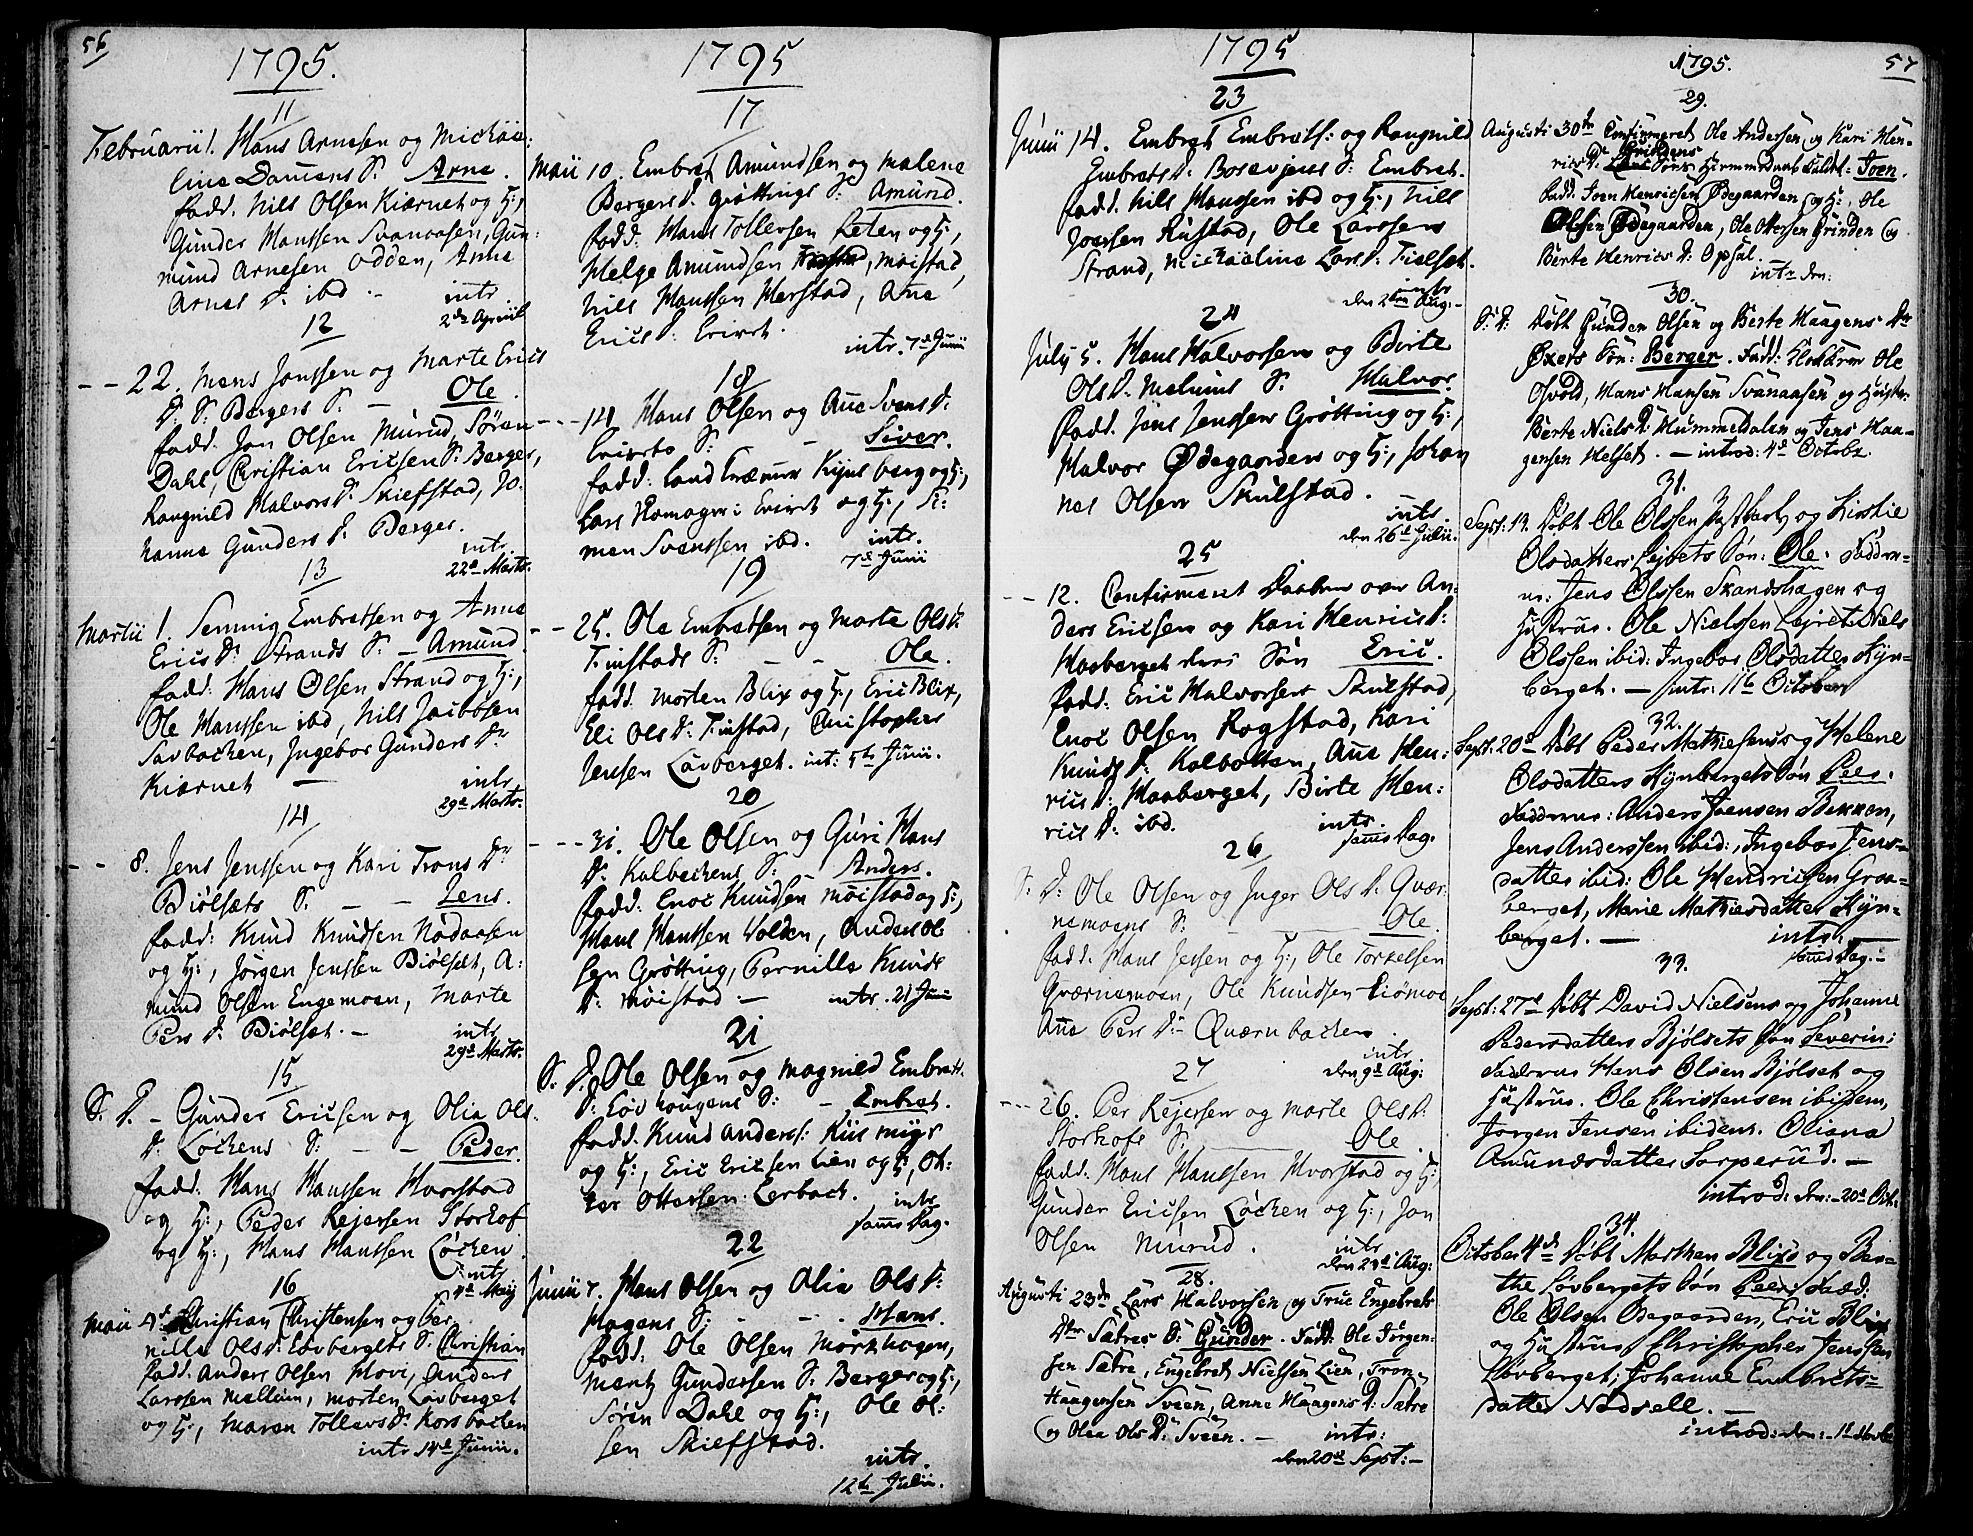 56
1795.
11
Februarii 1. Hans Arnesen og Mickae:
lina Samens S. Arne.
fadd. Nils Olsen Kiærnet og H:,
Gunder Hanssen Svenaasen, Gun:
mund Arnesen Odden, Anne
Arnes D. ibd. - intr
2d Aprill
12
- - 22. Mons Jonssen og Marte Erics
D. S. Bergers S. - Ole.
fadd. Jon Olsen Murud, Sören
Dahl, Christian Ericsen S. Berger,
Rangnild Halvors D. Skiefstad, Jo-
hanne Gunders D. Berger.
intr
22d Marts.
13
Martii 1. Semmig Embretsen og Anne
Erics Dr Strands S. - Amund.
fadd: Hans Olsen Strand og H:,
Ole Hanssen ibd, Nils Jacobsen
Savbacken, Ingebor Gunders Dr
Kiærnet - intr
29d Marts.
14
- - 8. Jens Jenssen og Kari Trons Dr
Biölsets S. - - Jens.
fadd: Knud Knudsen Nadaasen
og H:, Jörgen Jenssen Biölset, A:
mund Olsen Engemoen, Marte
Pers D. Biölset. -
intr
29d Marts.
15
S. D. - Gunder Ericsen og Olia Ols.
D. Löckens S. - - Peder.
fadd. Hans Hanssen Hvorstad
og H:, Peder Rejersen Storhof
og H:, Hans Hanssen Löcken.
intr
4d Maij
16
Maii 4d Christian Christensen og Per
nille Ols D. Lövbergets S. Christian
fadd. Anders Olsen Hovi, Anders
Larssen Mellum, Morten Lövberget
og H:, Maren Tollevs D. Korsbacken
intr 14d Junii.
1795
17
Maii 10. Embret Amundsen og Malene
Bergers D. Gröttings S. Amund.
fadd: Hans Tollersen Leten og H:,
Helge Amundsen Moistad,
Nils Hanssen Harstad, Ane
Erics D. Eviret.
intr. 7d Junii
18
- - - 14 Hans Olsen og Ane Svens D.
Evirets S. - - Siver.
fadd: Kynsberg og H:,
Lars i Eviret og H:, Si:
men Svenssen ibd. intr.
7d Junii
19
- - 25. Ole Embretsen og Marte Ols D.
Finstads S. - - Ole.
fadd Morten Blix og H:, Eric Blix,
Eli Ols D. Finstad, Christopher
Jensen Lövberget. int: 5th Junii.
20
- - - 31. Ole Olsen og Guri Hans
D. Kalbackens S. Anders.
fadd: Enoc Knudsen Moistad og H:,
Hans Hanssen Volden, Anders Ol
sen Grötting, Pernille Knuds
D. Moistad - intr. 21 Junii
21
S. D. Ole Olsen og Magnild Embrets.
D. Lövhougens S. - Embret.
fadd. Knud Anders: Kiismÿr
og H:, Eric Ericsen Lien og H:, Ot:
ter Ottersen Lerback.
intr
samme Dag.
22
Junii 7. Hans Olsen og Olia Ols D.
Hagens S: - - - Hans.
fadd: Ole Olsen Mörkhagen,
Mentz Gundersen S. Berger og H:,
Sören Dahl og H:, Ole Ol:
sen Skiefstad.
intr.
12th Julii.
1795
23
Junii 14. Embret Embrets: og Rangnild
Embrets D. S: Embret.
fadd. Nils Hanssen ibd og H:, Nils
Joensen Rustad, Ole Larssen
Strand, Mickaeline Lars D. Fielset.
intr
den 2den Aug:-
24
Julij 5. Hans Halvorsen og Birte
Ols D. Melums S. Halvor.
fadd. Jens Jenssen Grötting og H:,
Halvor Ödegaarden og H:, Johan
nes Olsen Skulstad.
intr
den 26d Julii.
25
- - 12. Confirmeret Daaben over An:
ders Ericsen og Kari Henrics D:
Haaberget deres Sön Eric.
fadd: Eric Halvorsen Skulstad,
Enoc Olsen Rogstad, Kari
Knuds D. Kalbotten, Ane Hen:
rics D: Haaberget, Birte Hen:
rics D: ibd. intr.
samme Dag.
26
S: D: Ole Olsen og Inger Ols D. Qvær
nemoens S: - - Ole.
fadd. Hans Jensen og H:, Ole Torkelsen
Qværnemoen, Ole Knudsen Liömoe
Ane Pers D: Qværnbacken.
intr
den 9d Aug:
27
- - - 26. Per Rejersen og Marte Ols D:
Storhofs S. Ole.
fadd. Hans Hanssen Hvorstad og H:
Gunder Ericsen Löcken og H:, Jon
Olsen Murud. intr
den 23d Aug:
28.
Augusti 23de Lars Halvorsen og True Engebrets
Dtr Sætres S: Gunder. Fadd: Ole Jörgen-
sen Sætre, Engebret Nielsen Lien, Tron
Haagensen Sveen, Anne Haagens D: Sætre
og Olea Ols D: Sveen. - intr:
den 20de Sept: -
1795. 57
29.
Augusti 30te Confirmeret Ole Andersen og Kari Hen-
rics D. Grindens Sön: Hiemmedaab kaldt: Joen.
Fadd: Joen Henricsen Ödegaarden og H:, Ole
Olsen Ödegaarden, Ole Ottersen Grinden og
Berte Henrics D: Opsal.
intr den:
30.
S: D: Döbt Gunder Olsen og Berte Haagens Dtr
Öxets Sön: Berger. Fadd: Klokkeren Ole
Osvold, Hans Hansen Svenaasen og Hustru
Berte Niels D: Hummeldalen og Jens Haa-
gensen Helset. - introd: 4d Octobr.
31.
Sept: 13. Döbt Ole Olssen og Kirstie
Olsdatters Lejrets Sön: Ole. Fadder-
ne: Jens Olssen Skandshagen og
Hustrue. Ole Nielssen Lejret. Niels
Olssen ibid: Ingebor Olsdatter Kÿn-
berget. - intr: 11te October
32.
Sept. 20d Döbt Peder Mathiesens og Helene
Olsdatters Kÿnbergets Sön Peer.
Fadderne: Anders Joensen Bekken,
Jens Anderssen ibid:, Ingebor Jens-
datter ibid: Ole Hendricsen Graa-
berget, Marie Mathiesdatter Kÿn-
berget. - intr:
samme Dag. -
33.
Sept: 27d Döbt David Nielsens og Johanne
Pedersdatters Bjölsets Sön Severin:
Fadderne Hans Olsen Bjölset og
Hustrue. Ole Christensen ibidem,
Jorgen Jensen ibidem. Oliana
Amundsdatter Sorperud. -
introd: den: - 20d Oct:
34.
October 4d Döbt Morthen Blixs og Ber-
the Lövbergets Sön Peer. Fadd:
Ole Olsen Oegaarden, Eric Blix
og Hustrue Christopher Jenssen
Lövberget, Johanne Embrets-
datter Nadsell. -
introd: den: - 1d Novbr